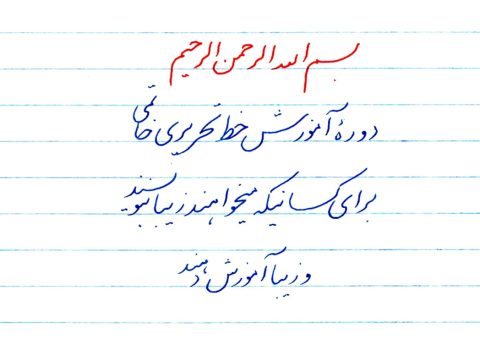 بسم الله الرحمن الرحیم
دورهٔ آموزش خط تحریری خاتمی
برای کسانیکه میخواهند زیبا بنویسند
و زیبا آموزش دهند